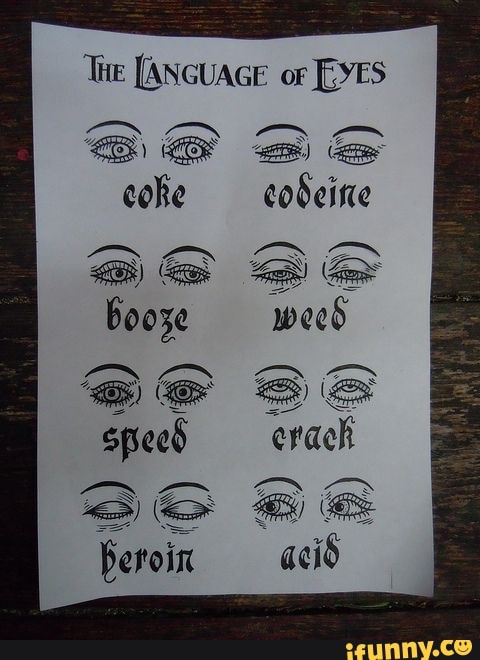 THE LANGUAGE OF EYES
coke codeine
booze weed
speed crack
heroin acid
ifunny.co